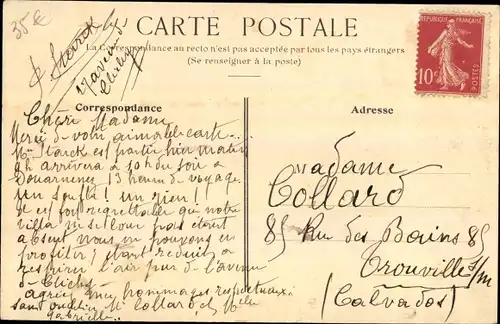 35€
CARTE POSTALE
La Correspondance au recto n'est pas acceptée par tous les pays étrangers
(Se renseigner à la poste)
RÉPUBLIQUE FRANÇAISE
10c
POSTES
Correspondance
Adresse
Chère Madame
Merci de votre aimable carte
est partie hier matin
9h arrivera à 10h du soir à
Douarnenez 13 heures de voyage
un souffle! un rien!
regrettable que notre
villa ne soit pas étant
absent nous ne pouvons en
profiter; étant réduits à
respirer l'air pur de l'avenue
de Clichy
agréez mes hommages respectueux
sans oublier Mr Collard et Melle
Gabrielle
Madame
Collard
85 Rue des Bains 85
Trouville s/m
(Calvados)